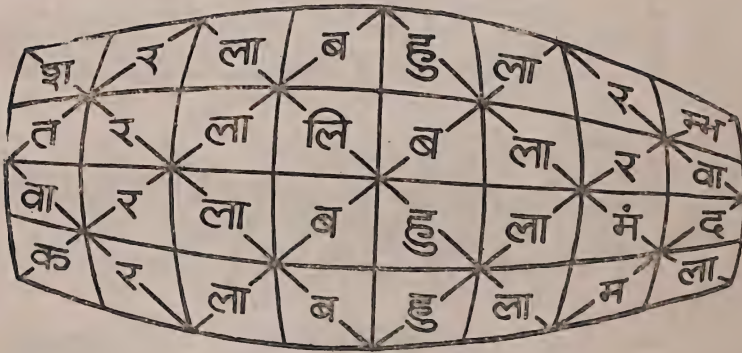 श र ला ब हु ला र म्भ
त र ला लि ब ला र वा
वा र ला ब हु ला मं द
क र ला ब हु ला म ला